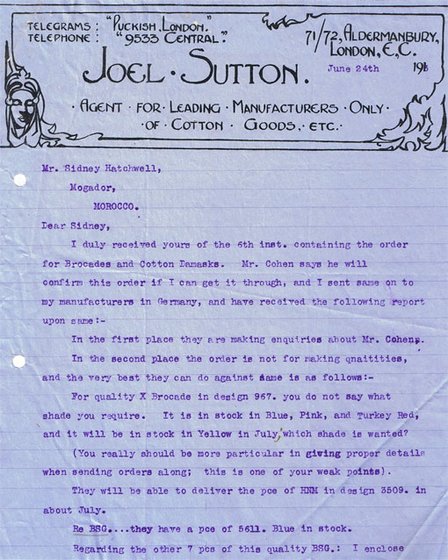 TELEGRAMS: "PUCKISH, LONDON."
TELEPHONE: "9533 CENTRAL."
71/72, ALDERMANBURY,
LONDON, E.C.
June 24th 191
JOEL · SUTTON.
· AGENT · FOR · LEADING · MANUFACTURERS · ONLY ·
· OF · COTTON · GOODS, · ETC. ·
Mr. Sidney Hatchwell,
Mogador,
MOROCCO.
Dear Sidney,
I duly received yours of the 6th inst. containing the order
for Brocades and Cotton Damasks. Mr. Cohen says he will
confirm this order if I can get it through, and I sent same on to
my manufacturers in Germany, and have received the following report
upon same:-
In the first place they are making enquiries about Mr. Cohen.
In the second place the order is not for making qnaitities,
and the very best they can do against same is as follows:-
For quality X Brocade in design 967. you do not say what
shade you require. It is in stock in Blue, Pink, and Turkey Red,
and it will be in stock in Yellow in July, which shade is wanted?
(You really should be more particular in giving proper details
when sending orders along; this is one of your weak points).
They will be able to deliver the pce of HNM in design 3509. in
about July.
Re BSG....they have a pce of 5611. Blue in stock.
Regarding the other 7 pcs of this quality BSG.: I enclose